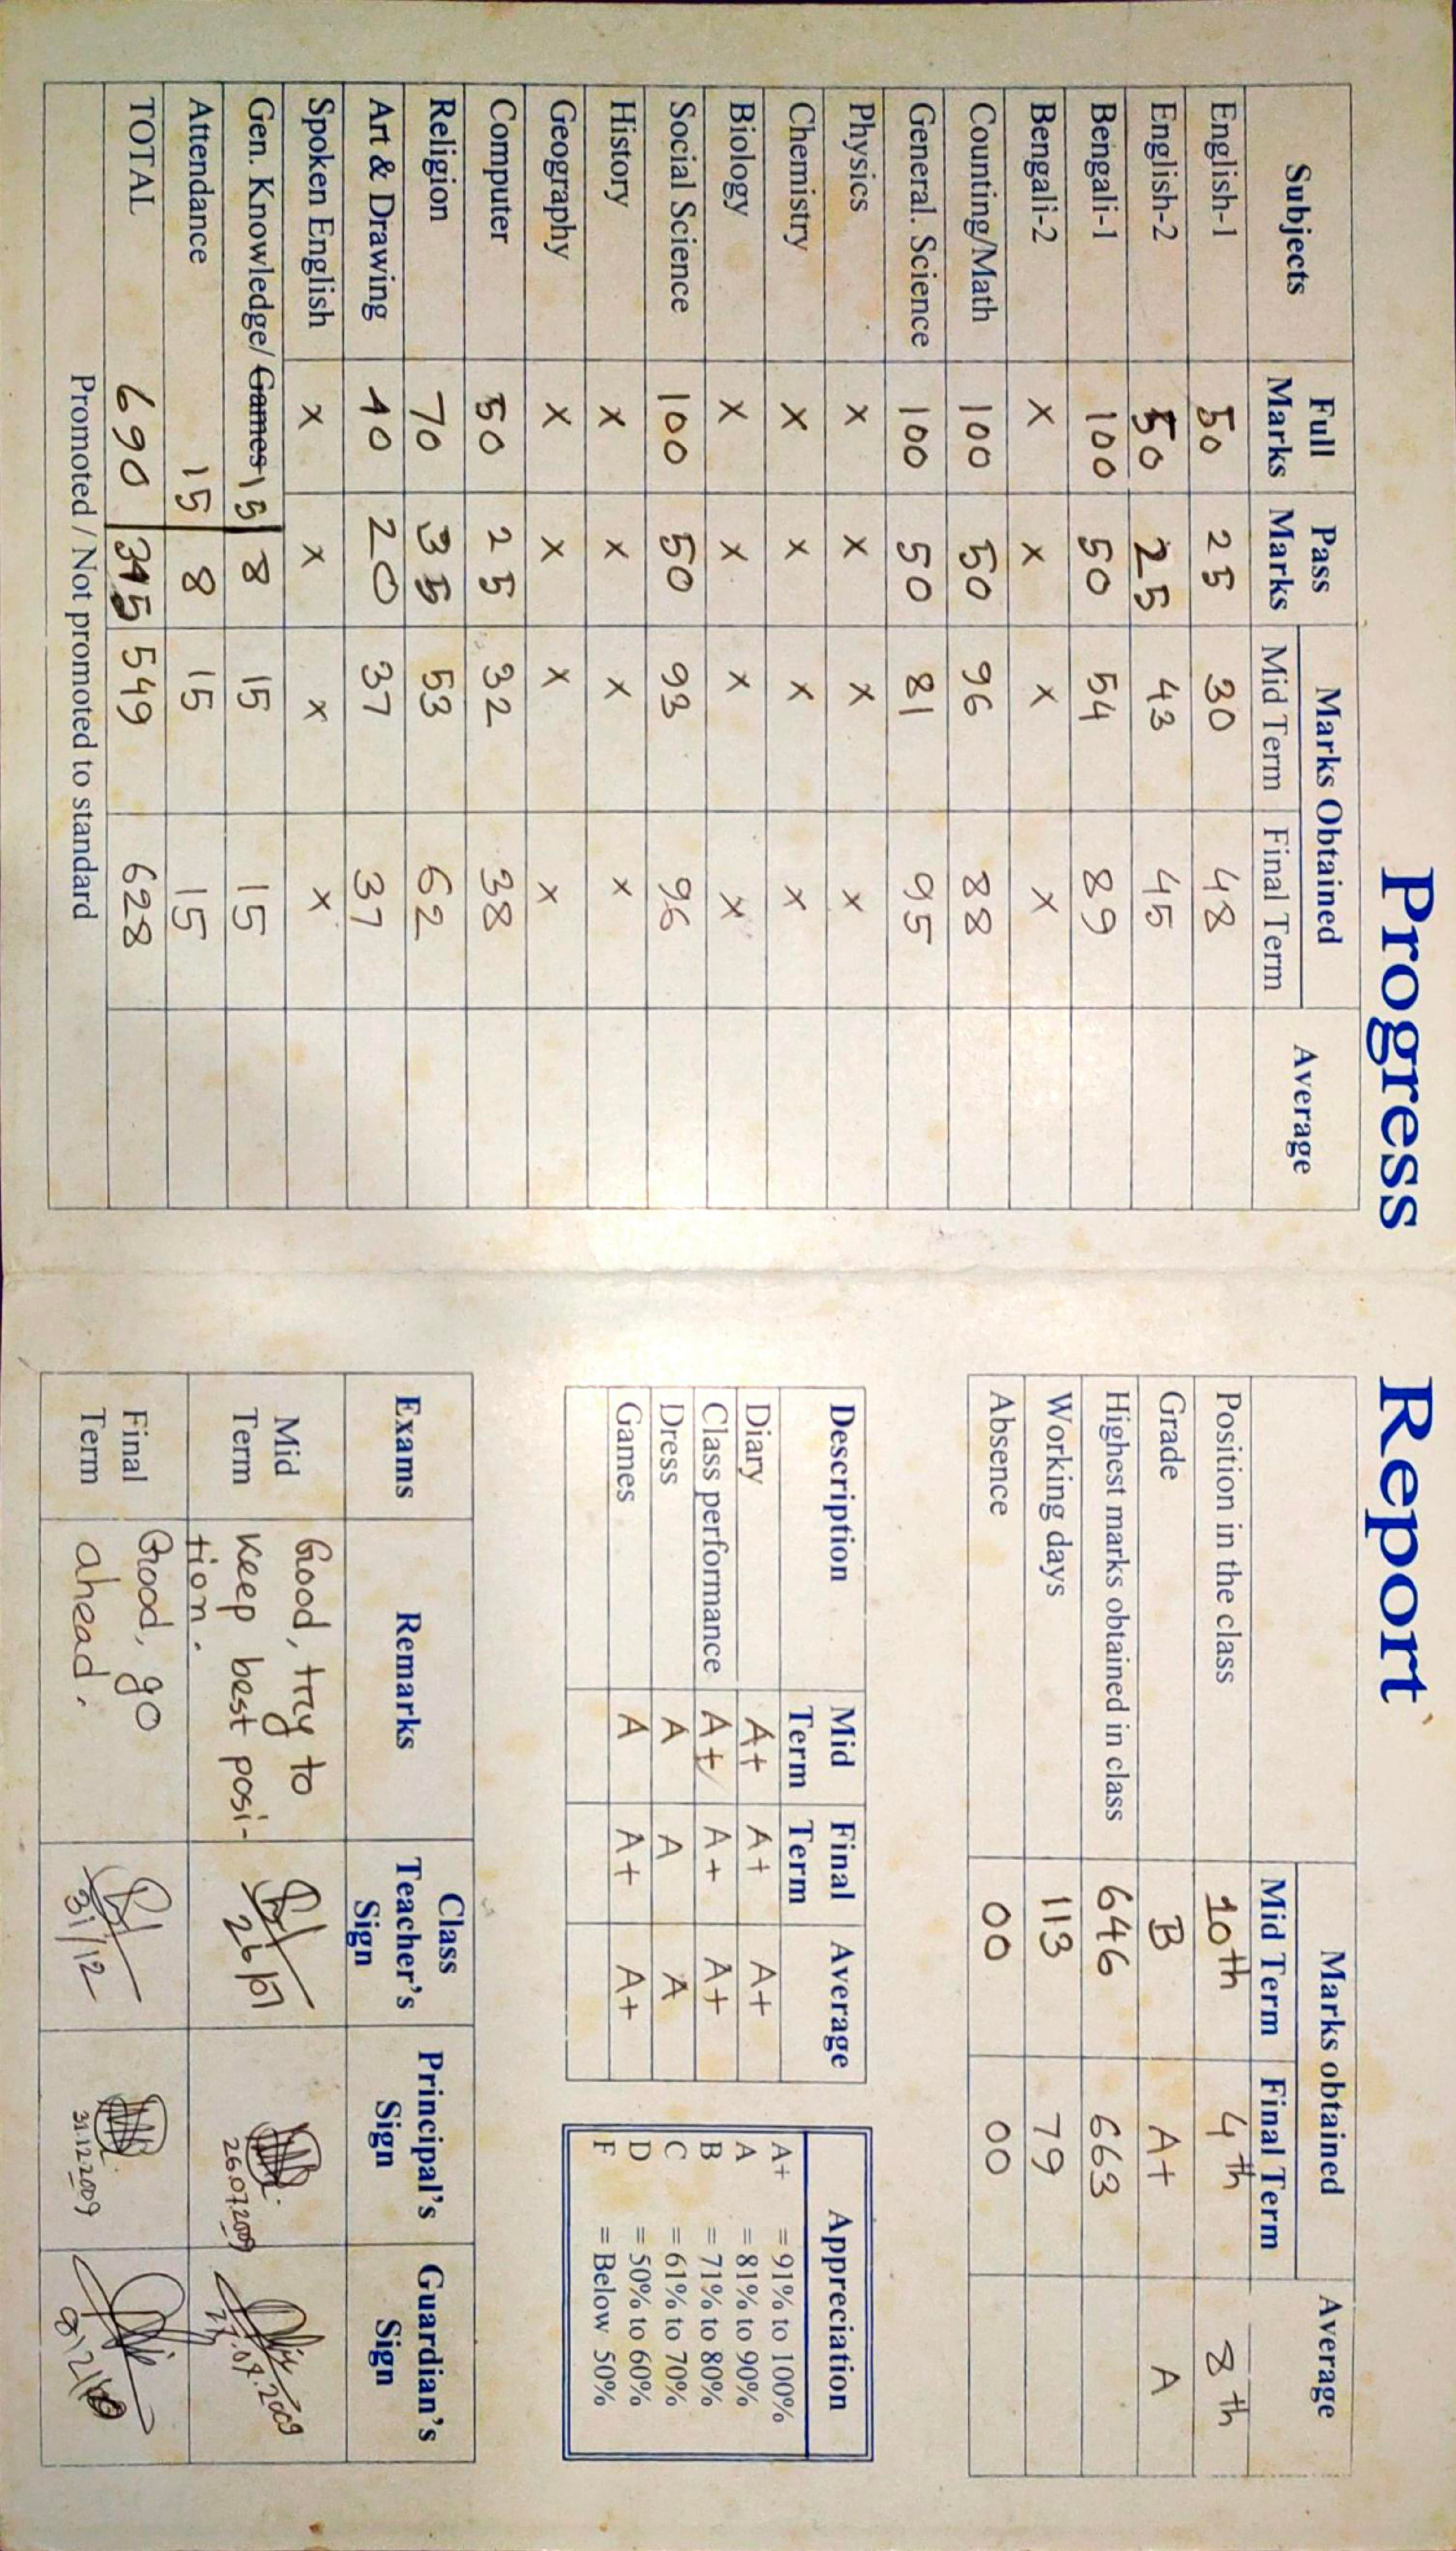 Progress Report
Subjects Full Marks Pass Marks Marks Obtained Average
Mid Term Final Term
English-1 50 25 30 48
English-2 50 25 43 45
Bengali-1 100 50 54 89
Bengali-2 x x x x
Counting/Math 100 50 96 88
General. Science 100 50 81 95
Physics x x x x
Chemistry x x x x
Biology x x x x
Social Science 100 50 93 96
History x x x x
Geography x x x x
Computer 50 25 32 38
Religion 70 35 53 62
Art & Drawing 40 20 37 37
Spoken English x x x x
Gen. Knowledge/ Games 15 8 15 15
Attendance 15 8 15 15
TOTAL 690 345 549 628
Promoted / Not promoted to standard
Marks obtained Average
Mid Term Final Term
Position in the class 10th 4th 8th
Grade B A+ A
Highest marks obtained in class 646 663
Working days 113 79
Absence 00 00
Description Mid Term Final Term Average
Diary A+ A+ A+
Class performance A+ A+ A+
Dress A A A
Games A A+ A+
Appreciation
A+ = 91% to 100%
A = 81% to 90%
B = 71% to 80%
C = 61% to 70%
D = 50% to 60%
F = Below 50%
Exams Remarks Class Teacher's Sign Principal's Sign Guardian's Sign
Mid Term
Good, try to
keep best posi-
tion.
26/07
26.07.2009
27.07.2009
Final Term
Good, go
ahead.
31/12
31.12.2009